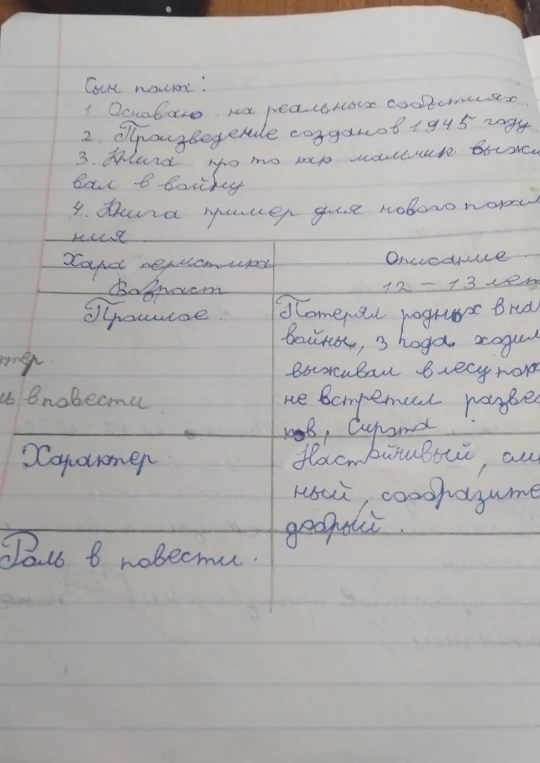 Сын полка:
1. Основано на реальных событиях.
2. Произведение создано в 1945 году.
3. Книга про то как мальчик выжи
вал в войну.
4. Книга пример для нового покал
ния
Характеристика Описание
Возраст 12 – 13 лет
Прошлое. Потерял родных в на
войны, 3 года ходил
выживал в лесу пока
не встретил развед
ков, Сирота
тер
ль в повести
Характер Настойчивый,
ный, сообразите
добрый.
Роль в повести.